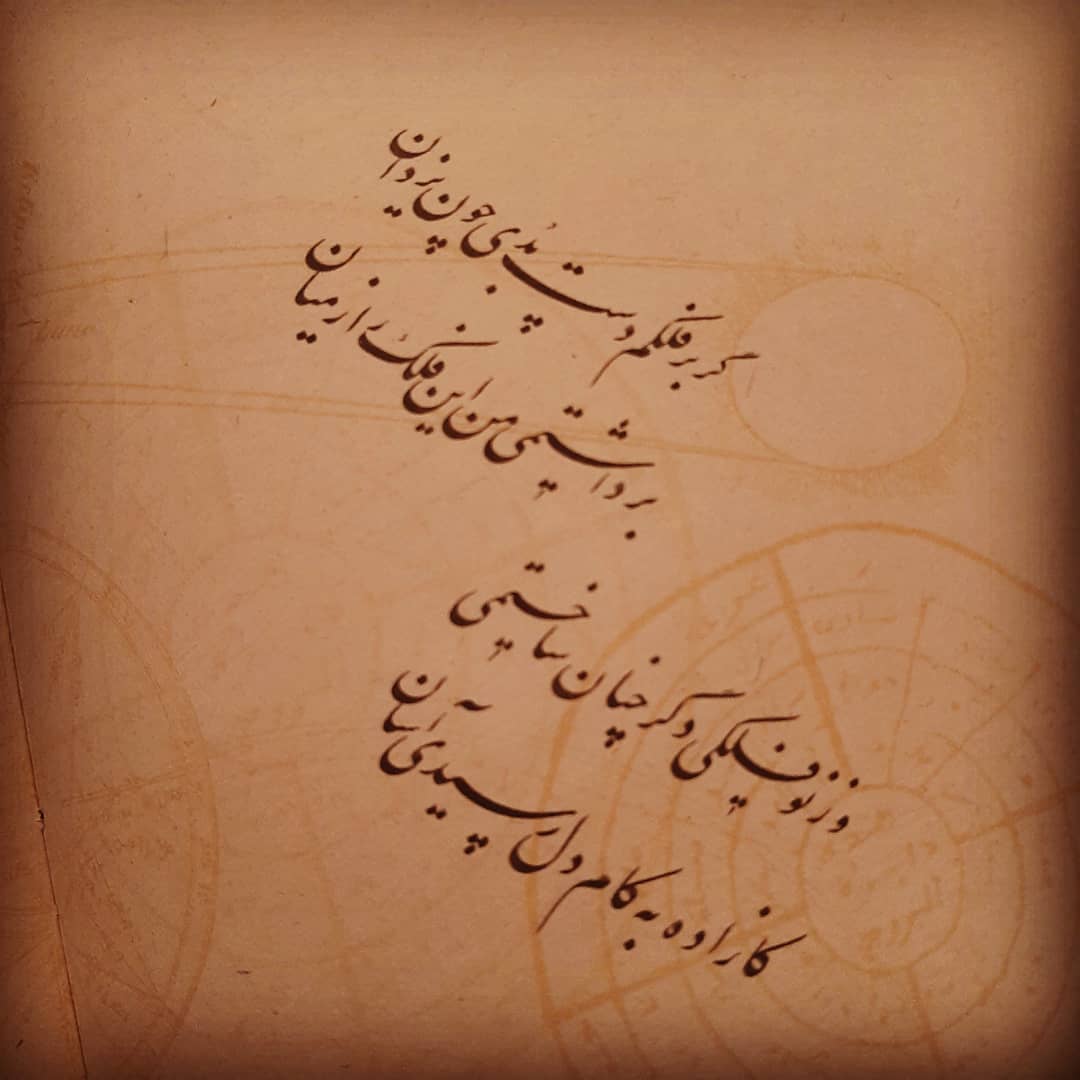 گر بر فلکم دست بُدی چون یزدان
برداشتمی من این فلک را ز میان
وز نو فلکی دگر چنان ساختمی
کازاده به کام دل رسیدی آسان